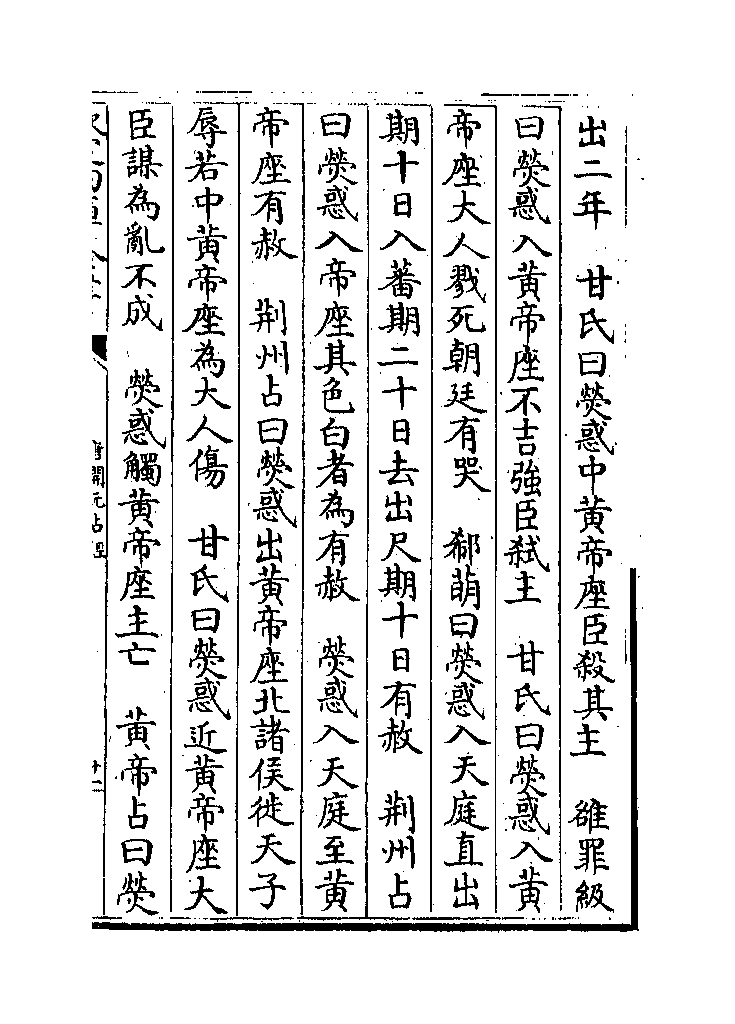 出二年　甘氏曰熒惑中黄帝座臣殺其主　雒罪級
曰熒惑入黄帝座不吉強臣弑主　甘氏曰熒惑入黄
帝座大人戮死朝廷有哭　郗萌曰熒惑入天庭直出
期十日入蕃期二十日去出尺期十日有赦　荆州占
曰熒惑入帝座其色白者為有赦　熒惑入天庭至黄
帝座有赦　荆州占曰熒惑出黄帝座北諸侯徙天子
辱若中黄帝座為大人傷　甘氏曰熒惑近黄帝座大
臣謀為亂不成　熒惑觸黄帝座主亡　黄帝占曰熒
唐開元占經